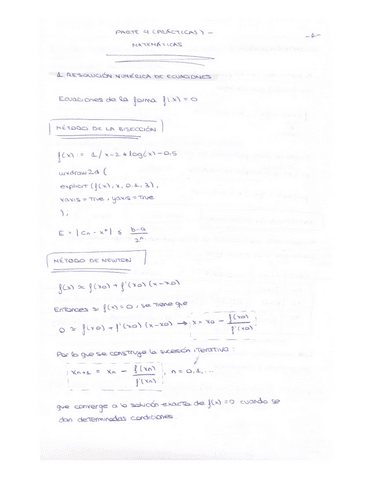 PARTE 4 (PRÁCTICAS) –
-1-
MATEMÁTICAS
1. RESOLUCIÓN NUMÉRICA DE ECUACIONES
Ecuaciones de la forma f(x) = 0
MÉTODO DE LA BISECCIÓN
f(x) := 1/x-2*log(x)-0.5
wxdraw2d (
explicit (f(x), x, 0.1, 3),
xaxis = true, yaxis = true
);
E = |Cn - x*| ≤ b-a / 2^n
MÉTODO DE NEWTON
f(x) ≈ f(x0) + f'(x0) (x-x0)
Entonces si f(x) = 0, se tiene que
0 ≈ f(x0) + f'(x0) (x-x0) → x = x0 - f(x0) / f'(x0)
Por lo que se construye la sucesión iterativa:
xn+1 = xn - f(xn) / f'(xn), n = 0,1,...
que converge a la solución exacta de f(x) = 0 cuando se
dan determinadas condiciones.